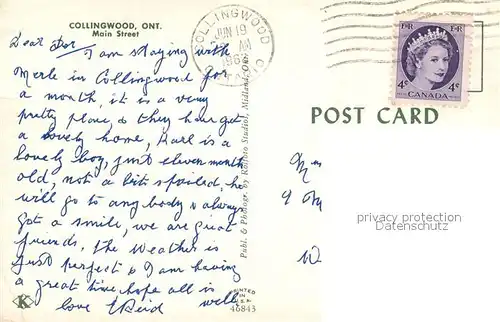 COLLINGWOOD, ONT.
Main Street
Dear Dor I am staying with
Merle in Collingwood for
a month, it is a very
pretty place & they have got
a lovely home, Karl is a
lovely boy, just eleven month
old, not a bit spoiled, he
will go to any body & always
got a smile, we are great
friends, the weather is
just perfect & I am having
a great time hope all is
well
love Reid
K
COLLINGWOOD
JUN 19
AM
Publ. & Photogr. by Kolfoto Studios, Midland, Ont.
PRINTED
IN
U.S.A.
46843
1-R 1-R
4c CANADA 4c
POST CARD
privacy protection
Datenschutz